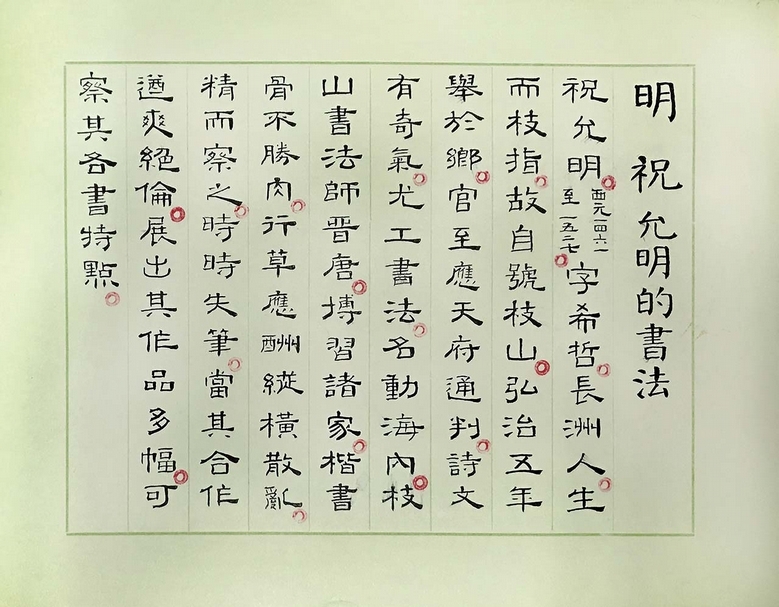 明 祝允明的書法
祝允明西元一四六一至一五二七字希哲長洲人生
而枝指故自號枝山弘治五年
舉於鄉官至應天府通判詩文
有奇氣尤工書法名動海內枝
山書法師晉唐摶習諸家楷書
骨不勝肉行草應酬縱橫散亂
精而察之時時失筆當其合作
遒爽絕倫展出其作品多幅可
察其各書特點